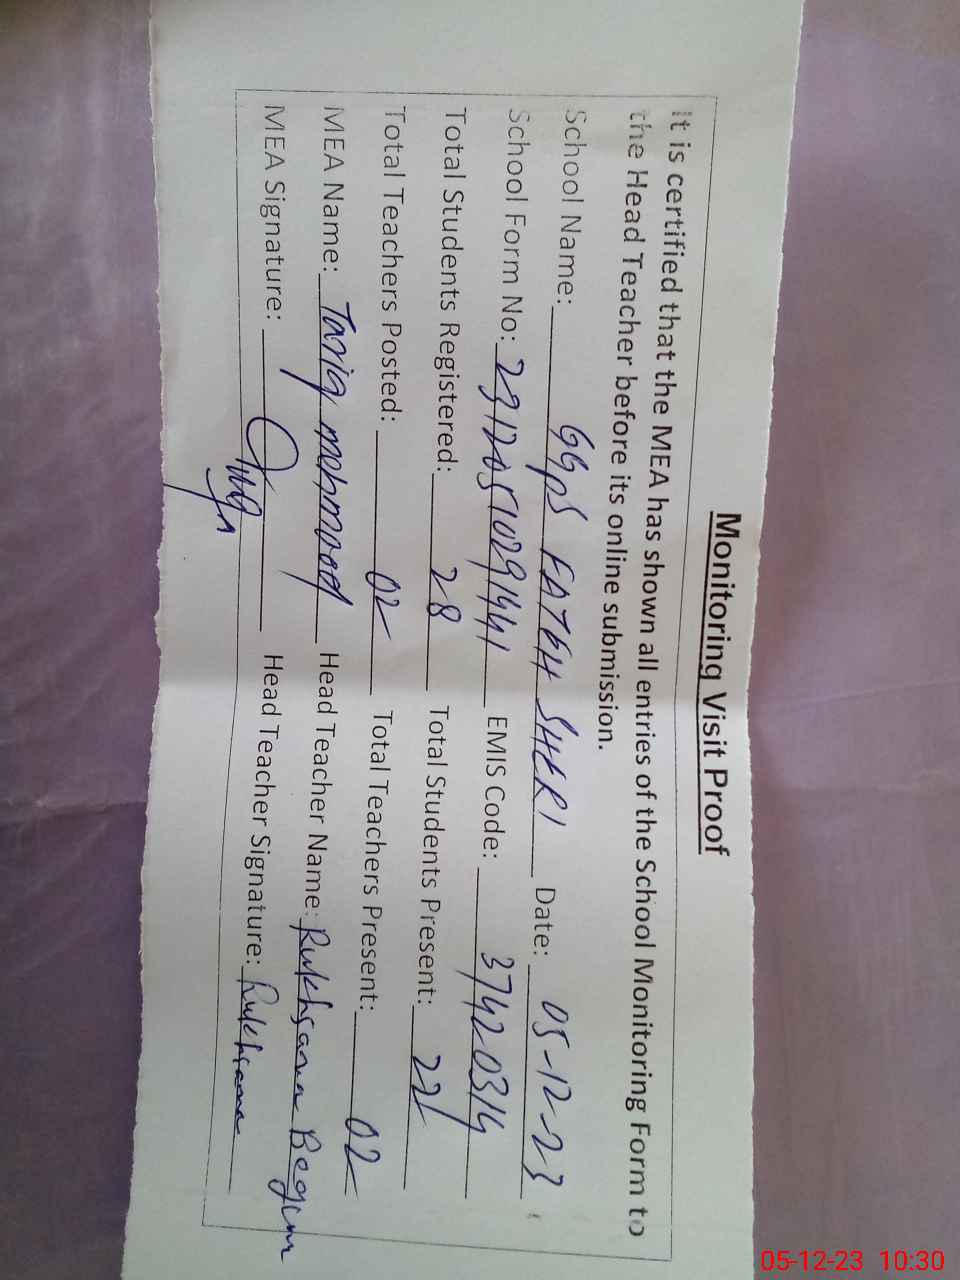 Monitoring Visit Proof
it is certified that the MEA has shown all entries of the School Monitoring Form to
the Head Teacher before its online submission.
School Name: GGPS FATEH SHERI Date: 05-12-23
School Form No: 2312051029441 EMIS Code: 37420314
Total Students Registered: 28 Total Students Present: 22
Total Teachers Posted: 02 Total Teachers Present: 02
MEA Name: Tariq mehmood Head Teacher Name: Rukhsana Begum
MEA Signature: Head Teacher Signature: Rukhsana
05-12-23 10:30